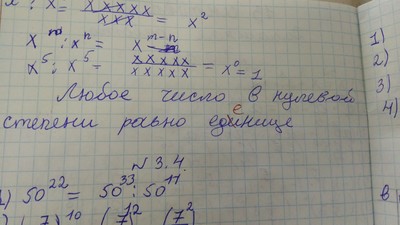 x = xxxxx / xxx = x²
xᵐ : xⁿ = xᵐ⁻ⁿ
x⁵ : x⁵ = xxxxx / xxxxx = x⁰ = 1
Любое число в нулевой
степени равно единице
N 3.4.
50²² = 50³³ : 50¹¹
1)
2)
3)
4)